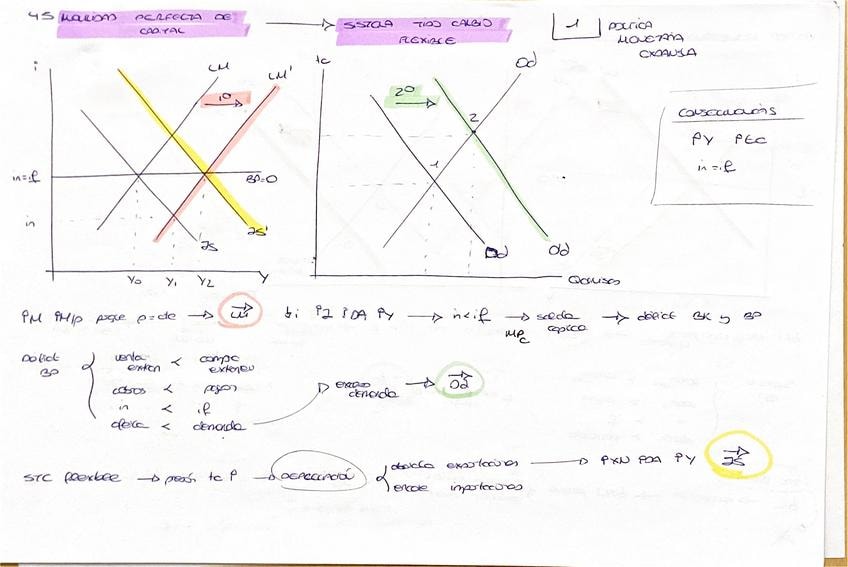 45 MOVILIDAD PERFECTA DE CAPITAL
SISTEMA TIPO CAMBIO FLEXIBLE
1
POLÍTICA
MONETARIA
EXPANSIVA
i
LM
LM'
1º
in=if
BP=0
in
IS
IS'
Y0
Y1
Y2
Y
tc
Od
2º
2
1
Dd
Dd'
Q divisas
CONSECUENCIAS
↑Y ↑tc
in=if
↑M ↑M/p porque p=cte → LM
↓i ↑I ↑DA ↑Y → in<if → salida capital → déficit BK y BP
MPC
Déficit BP
venta extran < compra extranj
cobros < pagos
in < if
oferta < demanda
exceso demanda → Dd
STC flexible → presión tc ↑ → DEPRECIACIÓN
abarata exportaciones → ↑XN ↑DA ↑Y IS
encarece importaciones